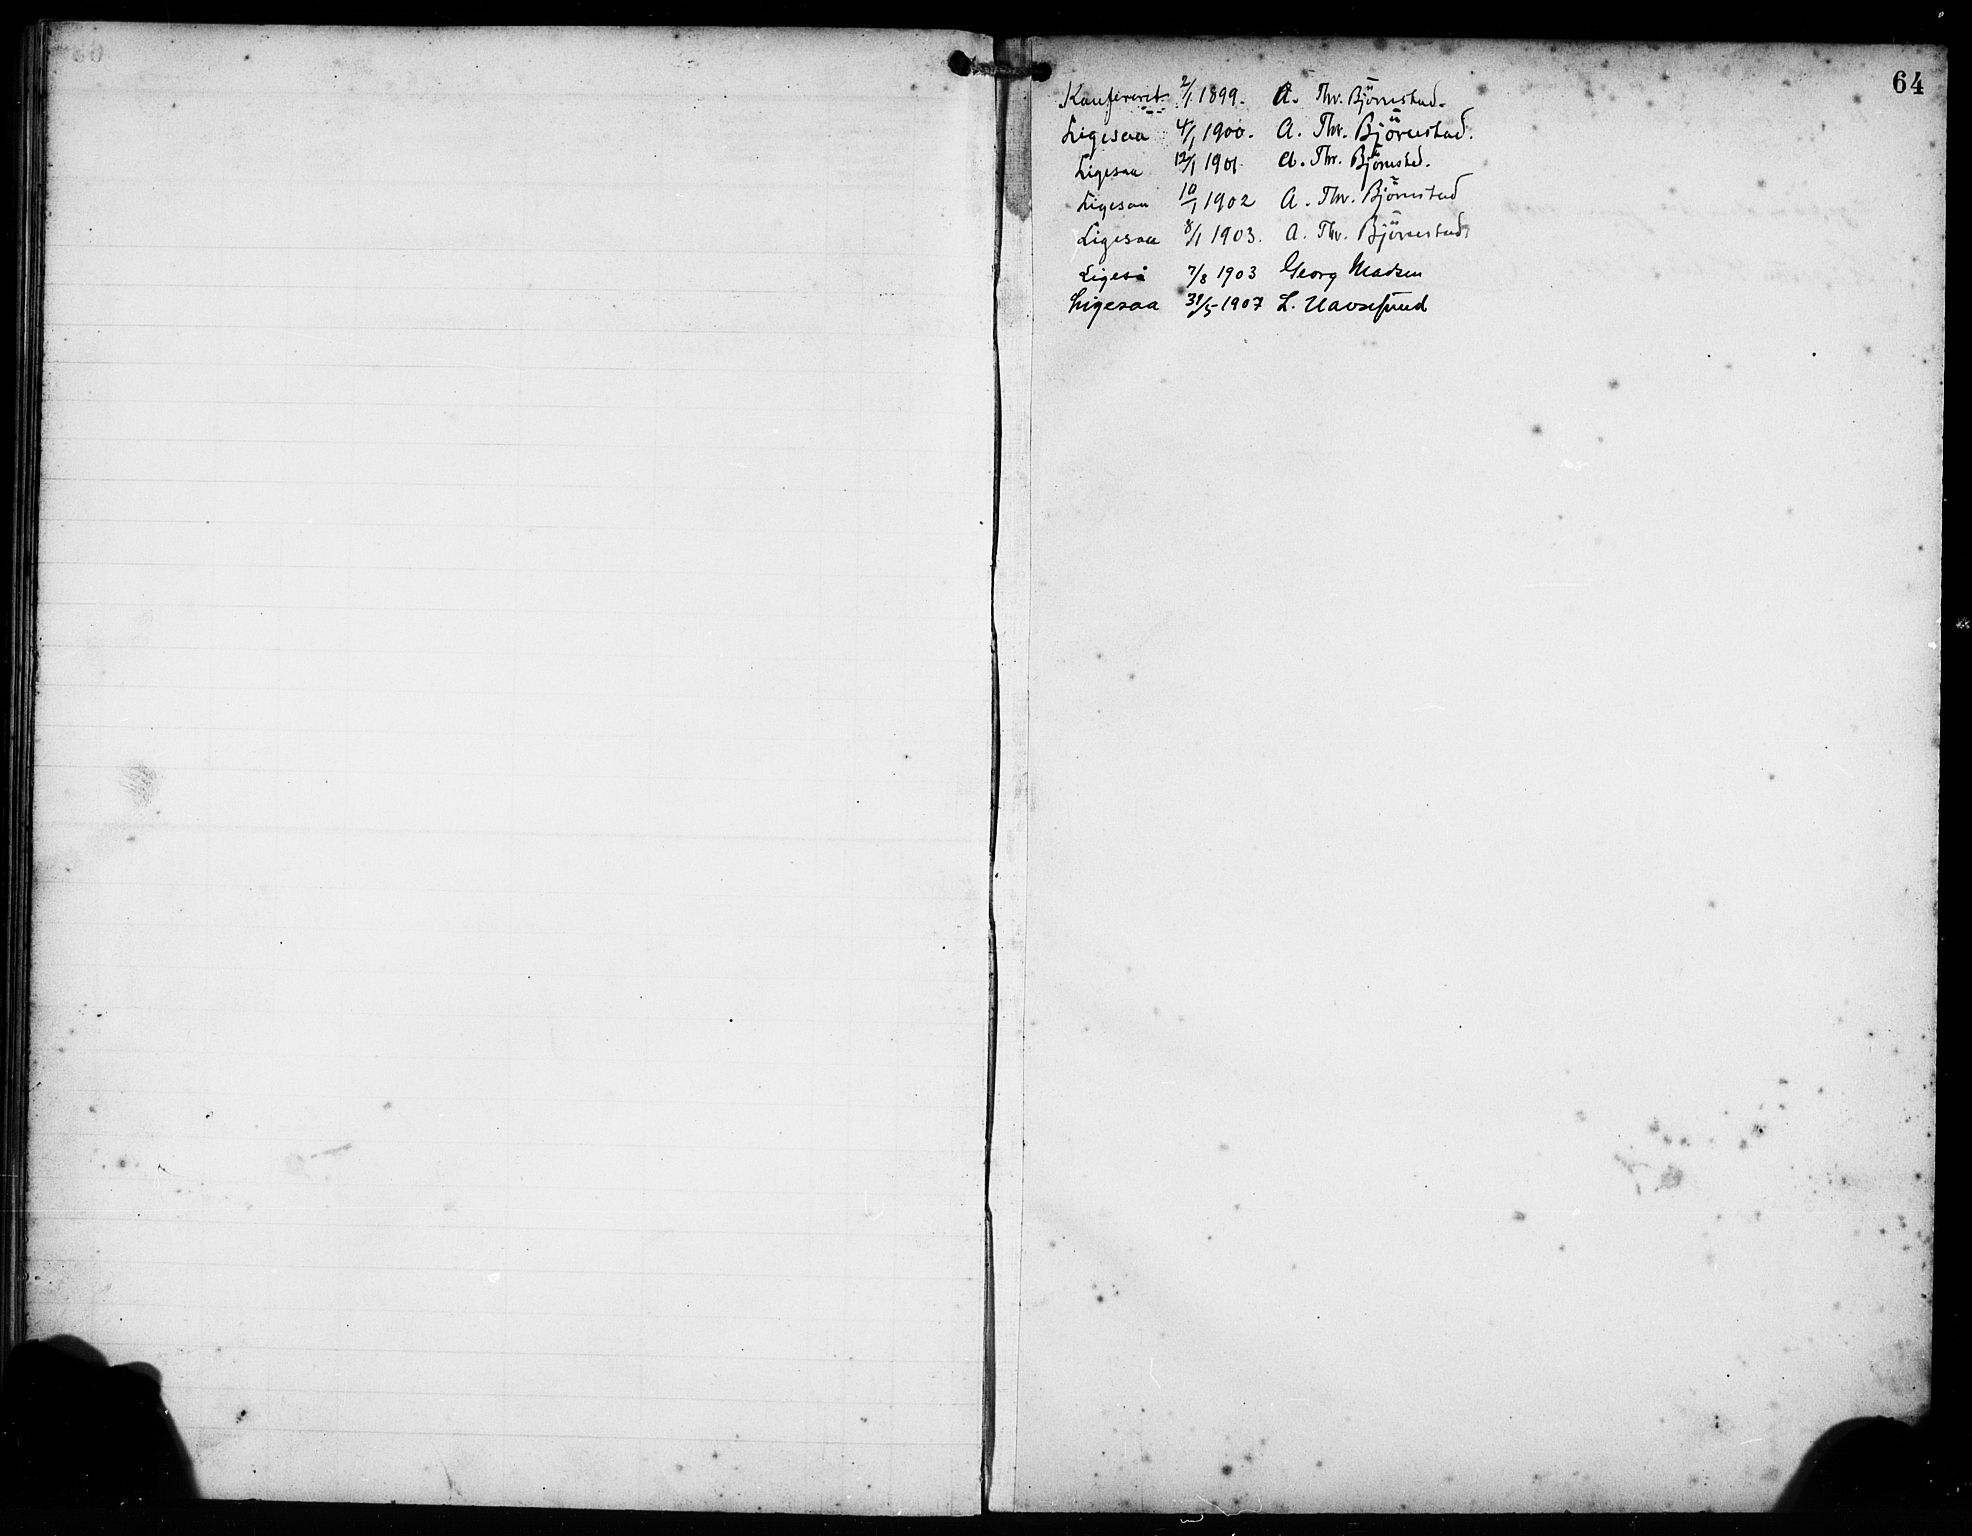 64
Konfereret 2/1 1899. A. Thv. Björnstad.
Ligesaa 4/1 1900. A. Thv. Björnstad.
Ligesaa 12/1 1901 A. Thv. Björnstad.
Ligesaa 10/1 1902 A. Thv. Björnstad
Ligesaa 8/1 1903. A. Thv. Björnstad.
Ligeså 7/8 1903 Georg Madsen
Ligesaa 31/5 1907 L.